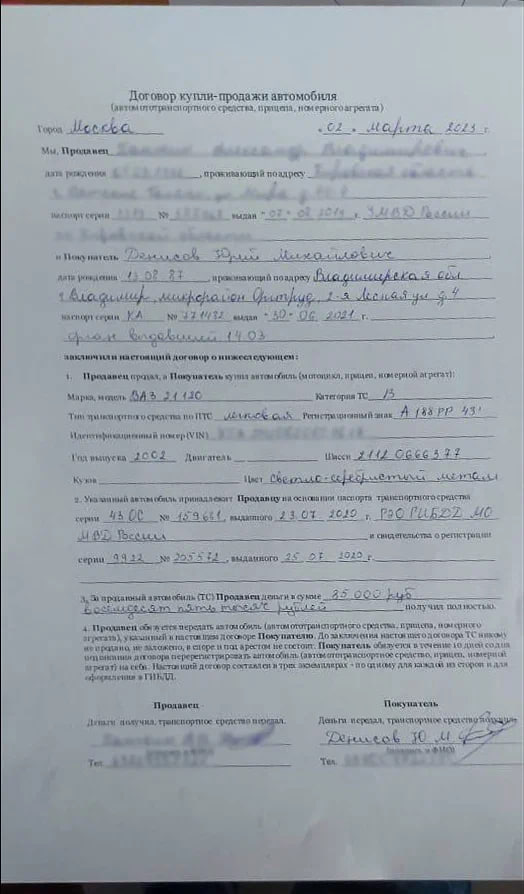 Договор купли-продажи автомобиля
(автомототранспортного средства, прицепа, номерного агрегата)
Город Москва «02» марта 2023 г.
Мы, Продавец Александр Владимирович
дата рождения , проживающий по адресу Кировская область
паспорт серии № выдан "07" 08 2019 г. УМВД России
по Кировской области
и Покупатель Денисов Юрий Михайлович
дата рождения 13 08 87, проживающий по адресу Владимирская обл
г Владимир, микрорайон Оргтруд, 2-я Лесная ул д. 4
паспорт серии КА № 771432 выдан "30" 06 2021 г.
орган выдавший 1403
заключили настоящий договор о нижеследующем:
1. Продавец продал, а Покупатель купил автомобиль (мотоцикл, прицеп, номерной агрегат):
Марка, модель ВАЗ 21120 Категория ТС В
Тип транспортного средства по ПТС легковая Регистрационный знак А 188 РР 43
Идентификационный номер (VIN)
Год выпуска 2002 Двигатель Шасси 2112 0666377
Кузов Цвет светло-серебристый метал
2. Указанный автомобиль принадлежит Продавцу на основании паспорта транспортного средства
серии 43 ОС № 159661, выданного 23.07 2020 г. РЭО ГИБДД МО
МВД России и свидетельства о регистрации
серии 9922 № 205572, выданного 25 07 2020 г.
3. За проданный автомобиль (ТС) Продавец деньги в сумме 85 000 руб
восемьдесят пять тысяч рублей получил полностью.
4. Продавец обязуется передать автомобиль (автомототранспортного средства, прицепа, номерного
агрегата), указанный в настоящем договоре Покупателю. До заключения настоящего договора ТС никому
не продано, не заложено, в споре и под арестом не состоит. Покупатель обязуется в течение 10 дней со дня
подписания договора перерегистрировать автомобиль (автомототранспортное средство, прицеп, номерной
агрегат) на себя. Настоящий договор составлен в трех экземплярах - по одному для каждой из сторон и для
оформления в ГИБДД.
Продавец Покупатель
Деньги получил, транспортное средство передал. Деньги передал, транспортное средство получил.
Денисов Ю М
(подпись и ФИО)
Тел. Тел.